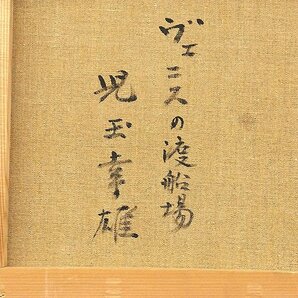 ヴェニスの渡船場
児玉幸雄